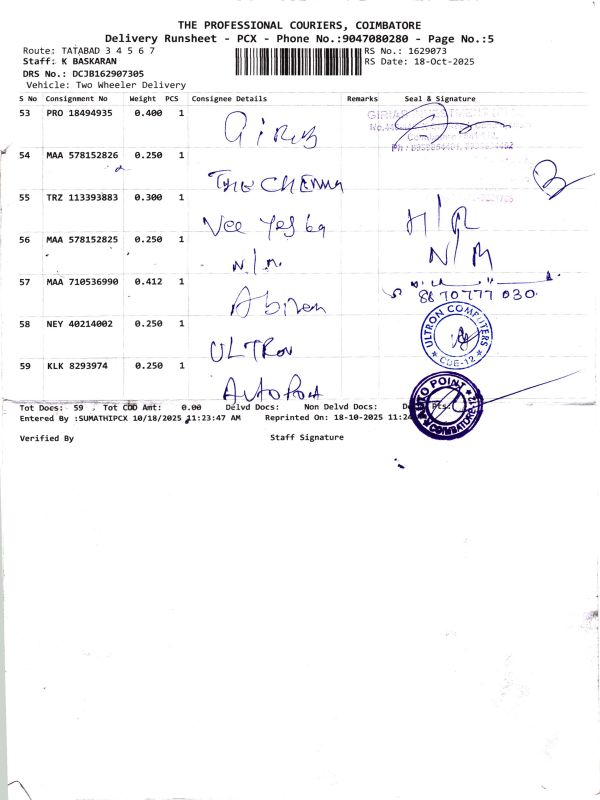 THE PROFESSIONAL COURIERS, COIMBATORE
Delivery Runsheet - PCX - Phone No.:9047080280 - Page No.:5
Route: TATABAD 3 4 5 6 7
RS No.: 1629073
Staff: K BASKARAN
RS Date: 18-Oct-2025
DRS No.: DCJB162907305
Vehicle: Two Wheeler Delivery
S No Consignment No Weight PCS Consignee Details Remarks Seal & Signature
53 PRO 18494935 0.400 1
54 MAA 578152826 0.250 1
THE CHENNA
55 TRZ 113393883 0.300 1
H/R
56 MAA 578152825 0.250 1
N/M
N/M
57 MAA 710536990 0.412 1
8670777030
58 NEY 40214002 0.250 1
ULTRON
ULTRON COMPUTERS
CBE-12
59 KLK 8293974 0.250 1
AutoPoint
AUTO POINT
COIMBATORE-12
Tot Docs: 59 Tot COD Amt: 0.00 Delvd Docs: Non Delvd Docs:
Entered By :SUMATHIPCX 10/18/2025 11:23:47 AM Reprinted On: 18-10-2025 11:24
Verified By Staff Signature